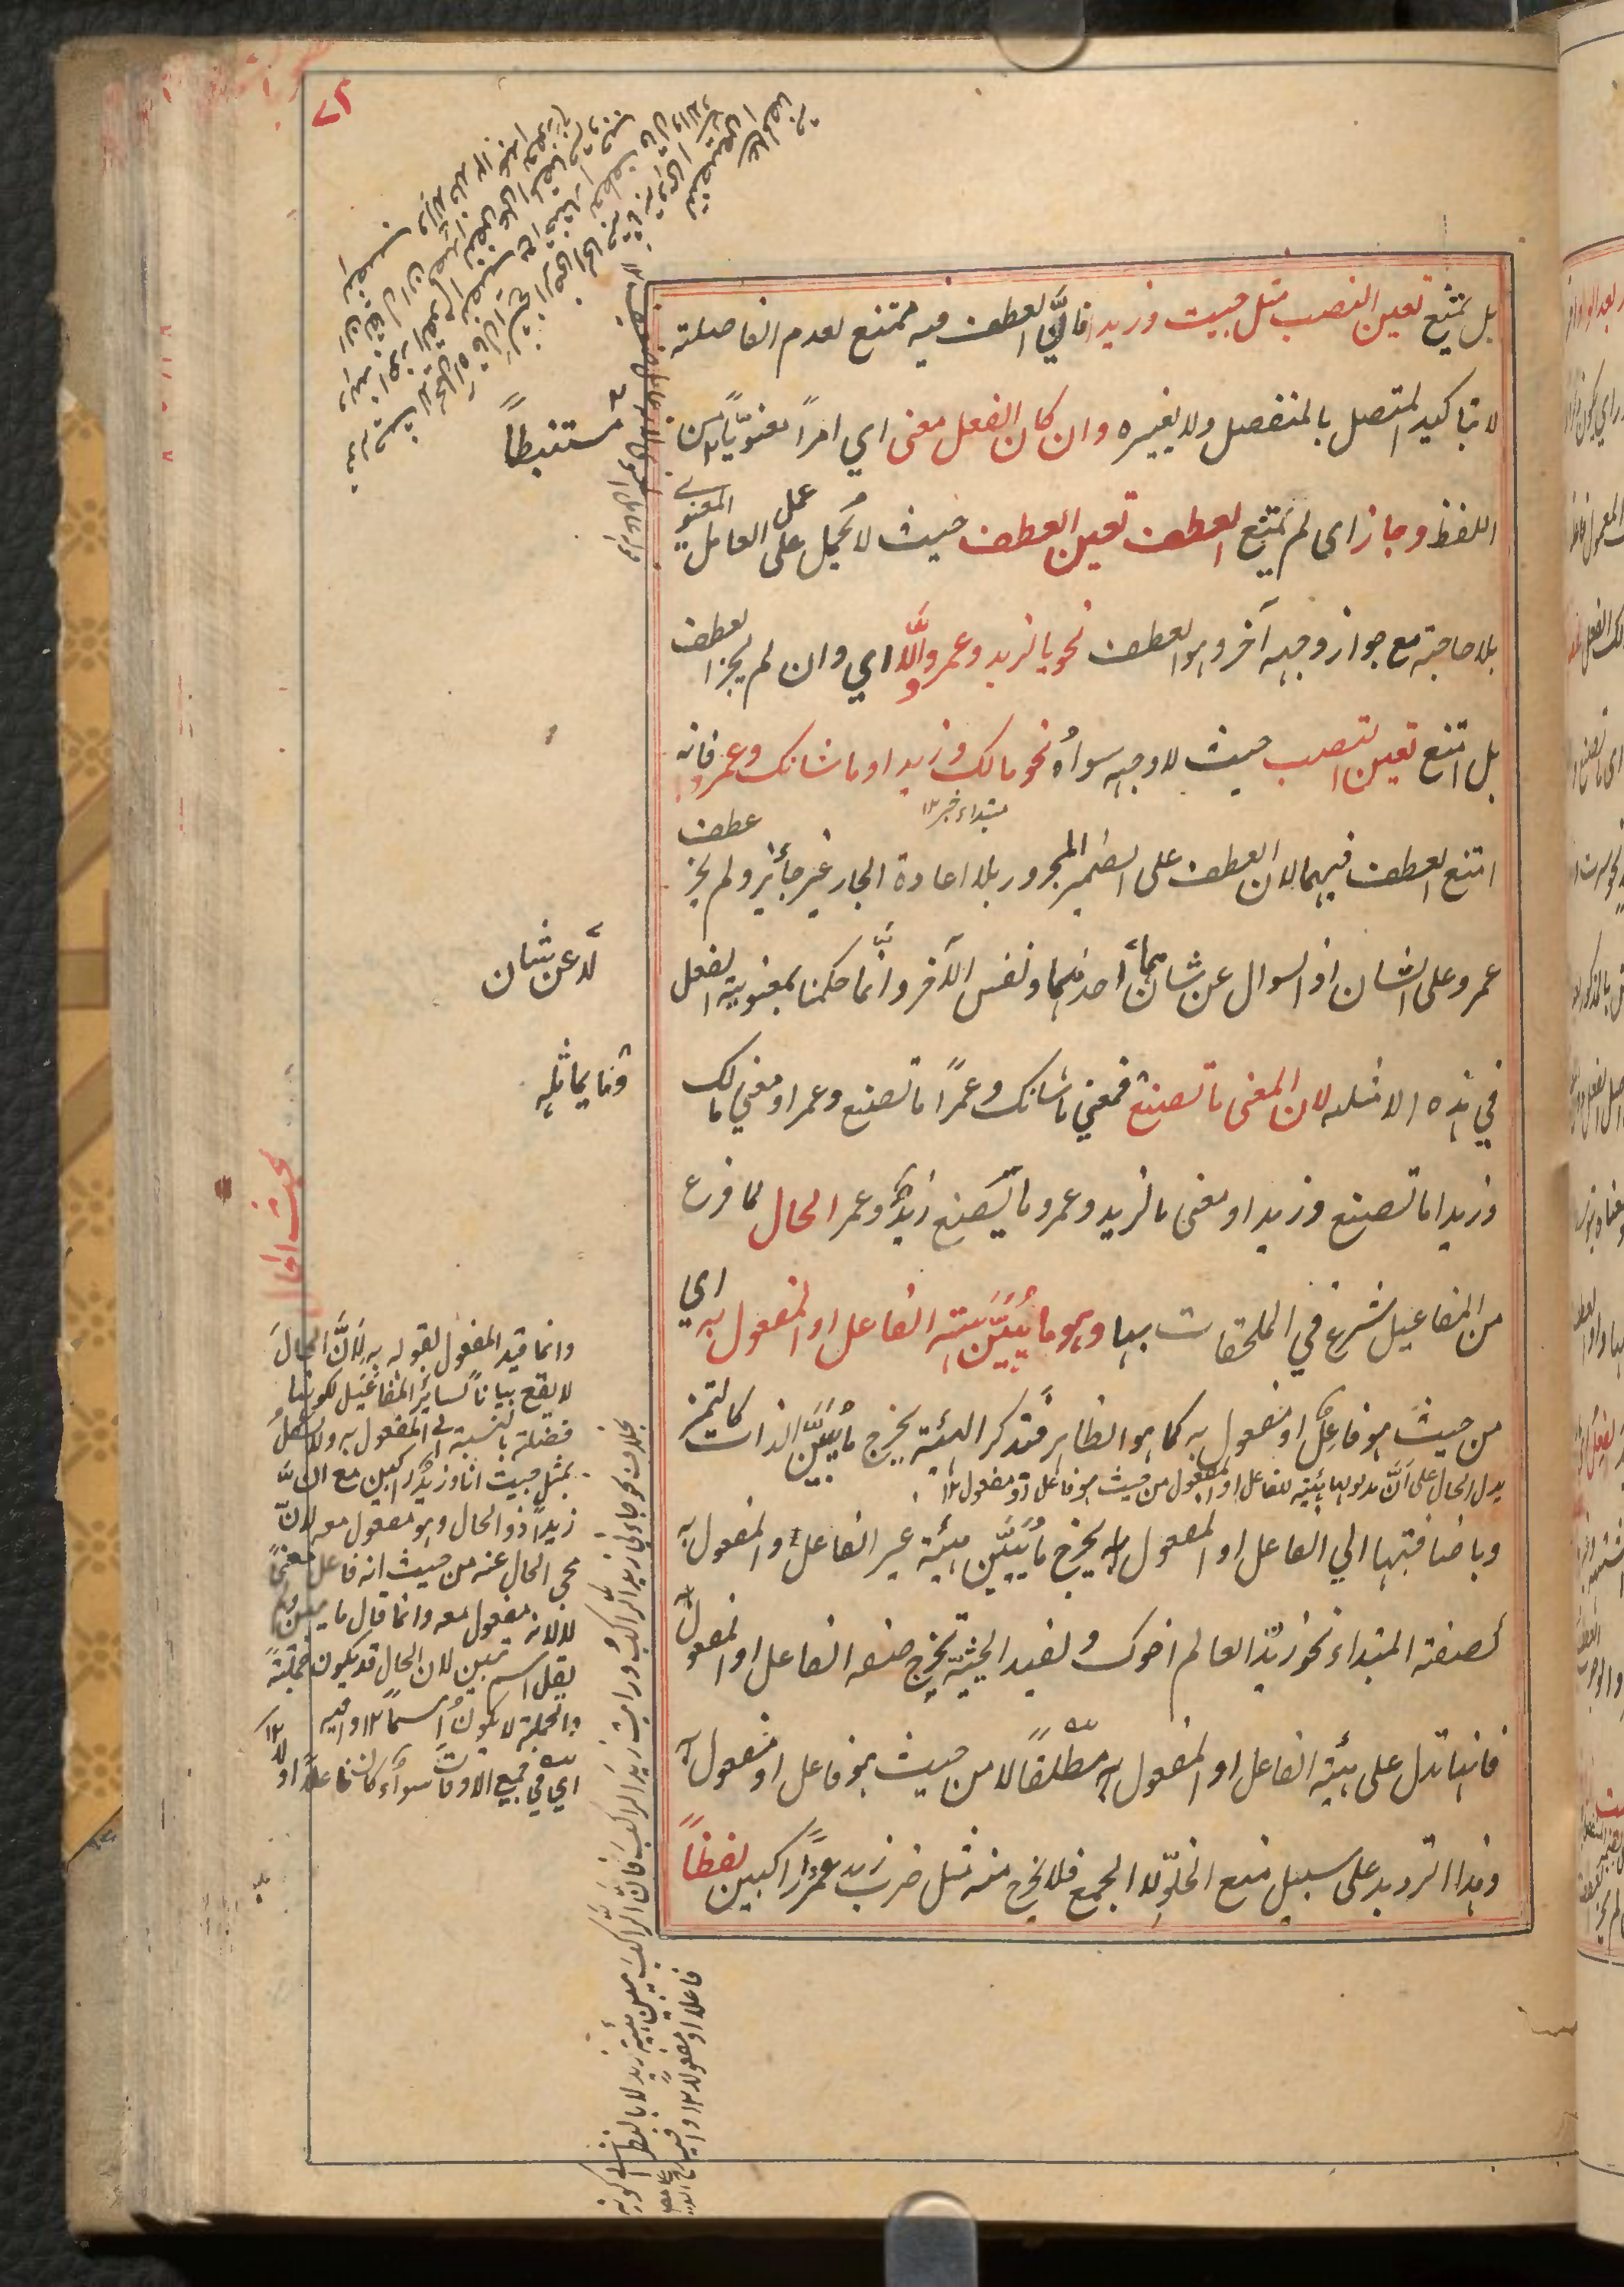 بل يمتنع تعين النصب مثل جيت وزيدا فانّ العطف فيه ممتنع لعدم الفاصلة
لا بتاكيد المتصل بالمنفصل ولا بغيره وان كان الفعل معنى اي امرًا معنويًا من
اللفظ وجاز اى لم يمتنع العطف تعين العطف حيث لا يحمل على عمل العامل المعنوي
بلا حاجة مع جواز وجه آخر وهو العطف نحو ما لزيد وعمرو والّا اي وان لم يجز العطف
بل امتنع تعين النصب حيث لا وجه سواه نحو مالك وزيدا وما شانك وعمروا فانه
امتنع العطف فيهما لان العطف على الضمير المجرور بلا اعادة الجار غير جائز ولم يجز عطف
مبتداء خبر ١٢
عمرو على الشان اذ السوال عن شانهما لا عن شان احدهما ونفس الآخر وانّما حكمنا بمعنوية الفعل
في هذه الامثله لان المعنى ما تصنع فمعنى ما شانك وعمرًا ما تصنع وعمرا ومعنى مالك
وزيدا ما تصنع وزيدا ومعنى ما لزيد وعمرو ما يصنع زيد وعمرو الحال لما فرغ
من المفاعيل شرع في الملحقات بها وهو ما يُبَيِّن هيئة الفاعل او المفعول به اي
من حيث هو فاعل او مفعول به كما هو الظاهر فبذكر الهيئة يخرج ما يُبَيِّن الذات كالتميز
يدل الحال على انّ مدلولها هيئة للفاعل او المفعول من حيث هو فاعل او مفعول ١٢
وباضافتها الي الفاعل او المفعول به يخرج ما يُبَيِّن هيئة غير الفاعل والمفعول به
كصفة المبتداء نحو زيد العالم اخوك وبقيد الحيثية يخرج صفة الفاعل او المفعول
فانها تدل على هيئة الفاعل او المفعول به مطلقًا لا من حيث هو فاعل او مفعول به
وهذا الترديد على سبيل منع الخلوّ لا الجمع فلا يخرج منه مثل ضرب زيد عمرًا راكبين لفظاً
مستنبطاً
لا عن شان
وما يماثله
بحث الحال
وانما قيد المفعول بقوله به لانّ الحال
لا يقع بياناً لسائر المفاعيل لكونها
فضلة بالنسبة الى المفعول به ولا يشكل
بمثل جيت انا وزيدًا راكبين مع انّ
زيداً ذو الحال وهو مفعول معه لانّ
مجئ الحال عنه من حيث انه فاعل معنىً
لا لانه مفعول معه وانما قال ما يبين ولم
يقل اسم يبين لان الحال قد يكون جملة
والجملة لا يكون اسماً ١٢ وافيه
اي في جميع الاوقات سواء كان فاعلاً او لا ١٢
بخلاف نحو جاءني زيد الراكب ورايت زيدا الراكب فانّ الراكب يبين هيئة زيد لا بالنظر الى كونه
فاعلا او مفعولا ١٢ وافيه